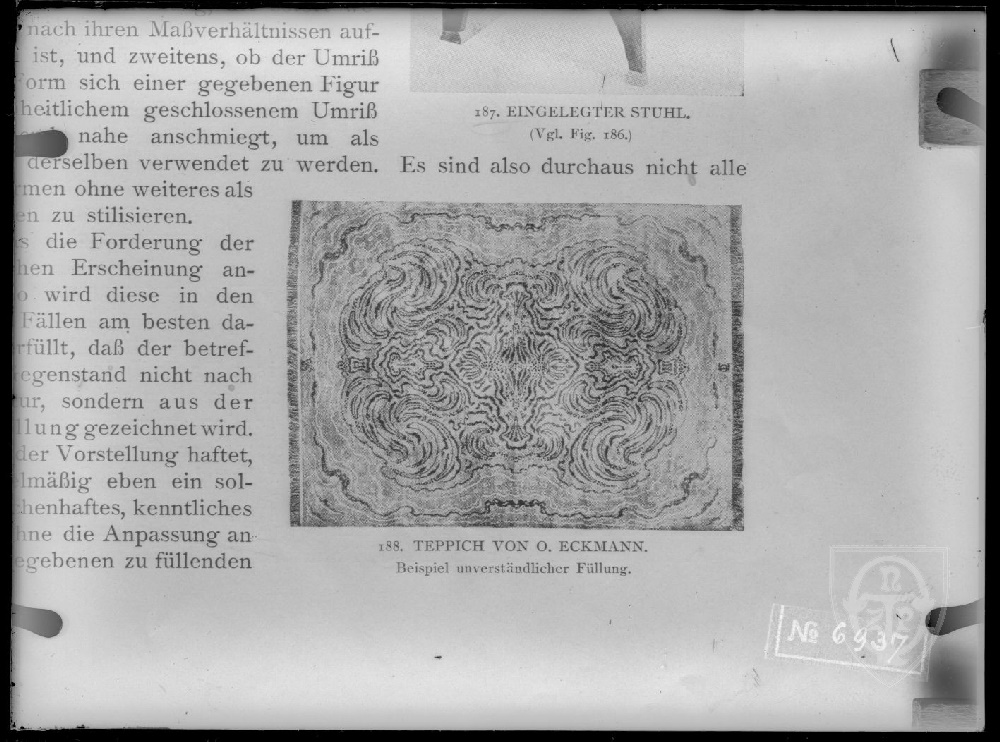 nach ihren Maßverhältnissen auf-
ist, und zweitens, ob der Umriß
orm sich einer gegebenen Figur
heitlichem geschlossenem Umriß
nahe anschmiegt, um als
derselben verwendet zu werden. Es sind also durchaus nicht alle
men ohne weiteres als
en zu stilisieren.
s die Forderung der
hen Erscheinung an-
o wird diese in den
Fällen am besten da-
rfüllt, daß der betref-
egenstand nicht nach
ur, sondern aus der
llung gezeichnet wird.
der Vorstellung haftet,
lmäßig eben ein sol-
henhaftes, kenntliches
hne die Anpassung an
egebenen zu füllenden
187. EINGELEGTER STUHL.
(Vgl. Fig. 186.)
188. TEPPICH VON O. ECKMANN.
Beispiel unverständlicher Füllung.
№ 6937